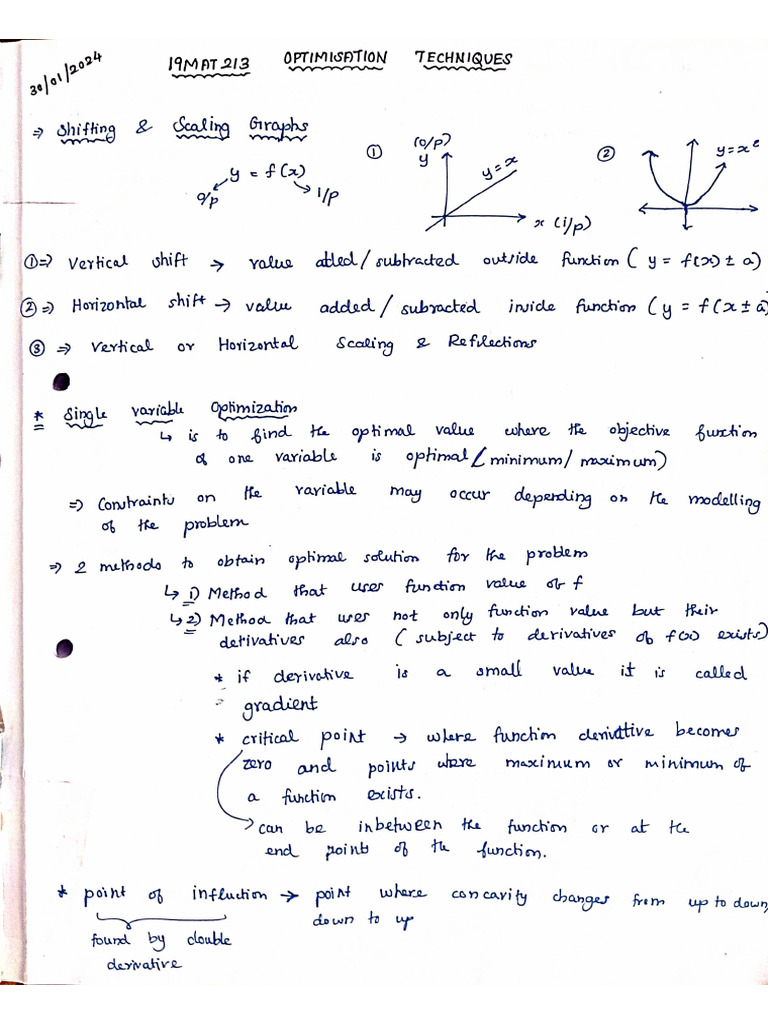 30/01/2024
19MAT213 OPTIMISATION TECHNIQUES
⇒ Shifting & Scaling Graphs
y = f(x)
o/p
i/p
①
(o/p)
y
y = x
x (i/p)
②
y = x²
①⇒ Vertical shift → value added/subtracted outside function (y = f(x) ± a)
②⇒ Horizontal shift → value added/subracted inside function (y = f(x ± a)
③ ⇒ Vertical or Horizontal Scaling & Reflections
* Single variable Optimization
↳ is to find the optimal value where the objective function
of one variable is optimal (minimum/maximum)
⇒ Constraints on the variable may occur depending on the modelling
of the problem
⇒ 2 methods to obtain optimal solution for the problem
↳ 1) Method that uses function value of f
↳ 2) Method that uses not only function value but their
derivatives also (subject to derivatives of f(x) exists)
* if derivative is a small value it is called
gradient
* critical point → where function derivative becomes
zero and points where maximum or minimum of
a function exists.
→ can be inbetween the function or at the
end points of the function.
* point of influction → point where concavity changes from up to down,
down to up
found by double
derivative